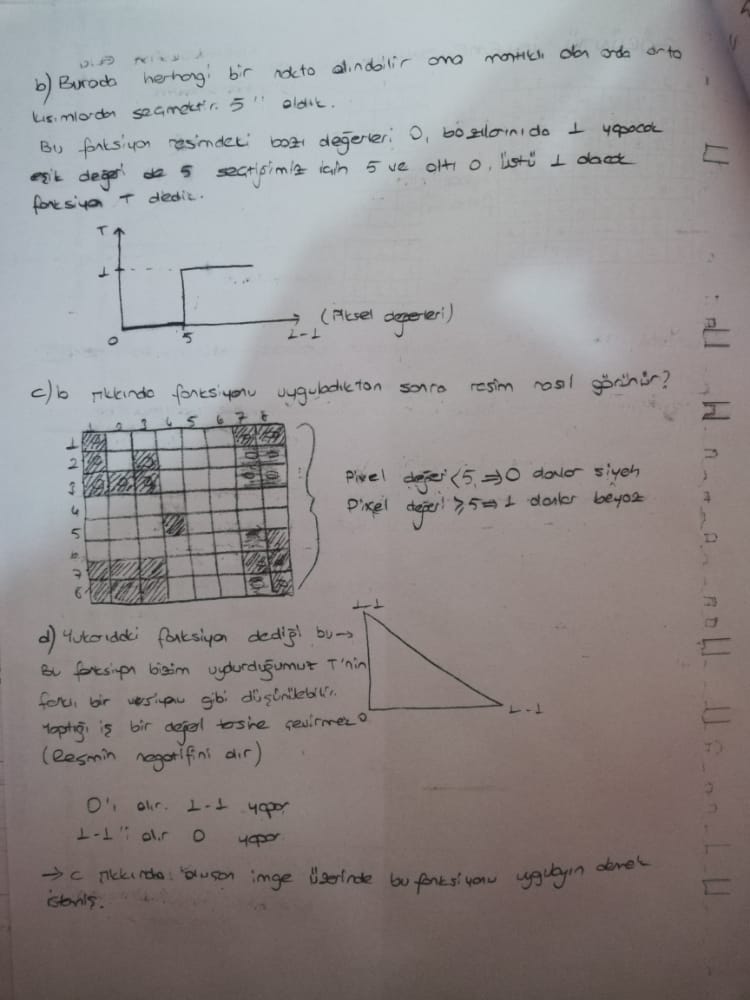 b) Burada herhangi bir nokta alınabilir ama mantıklı olan orda orta
kısımlardan seçmektir. 5'i aldık.
Bu fonksiyon resimdeki bazı değerleri 0, bazılarını da 1 yapacak
eşik değeri de 5 seçtiğimiz için 5 ve altı 0, üstü 1 olacak
fonksiyona T dedik.
T
1
0 5 L-1 (Piksel değerleri)
c) b şıkkında fonksiyonu uyguladıktan sonra resim nasıl görünür?
1 2 3 4 5 6 7 8
1
2
3
4
5
6
7
8
Pixel değeri < 5 ⇒ 0 danlar siyah
Pixel değeri ≥ 5 ⇒ 1 danlar beyaz
d) Yukarıdaki fonksiyon dediği bu →
Bu fonksiyon bizim uydurduğumuz T'nin
farklı bir versiyonu gibi düşünülebilir.
Yaptığı iş bir değeri tersine çevirmek
(Resmin negatifini alır)
L-1
0
L-1
0'ı alır. L-1 yapar
L-1'i alır 0 yapar
→ c şıkkında oluşan imge üzerinde bu fonksiyonu uygulayın demek
istemiş.